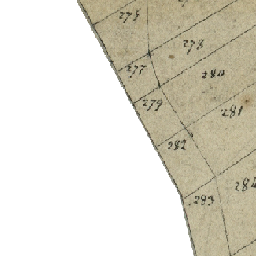 275
278
277
280
279
281
282
284
283